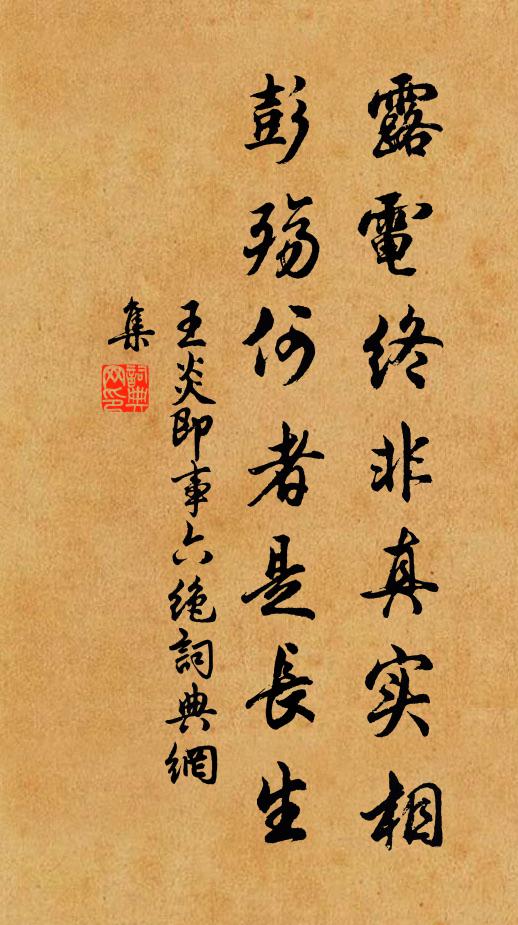 露電終非真实相
彭殤何者是長生
王炎即事六绝詞典網
集
詞典
网印